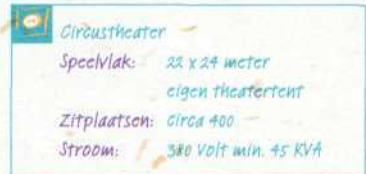 Circustheater
Speelvlak: 22 x 24 meter
eigen theatertent
Zitplaatsen: circa 400
Stroom: 380 Volt min. 45 KVA